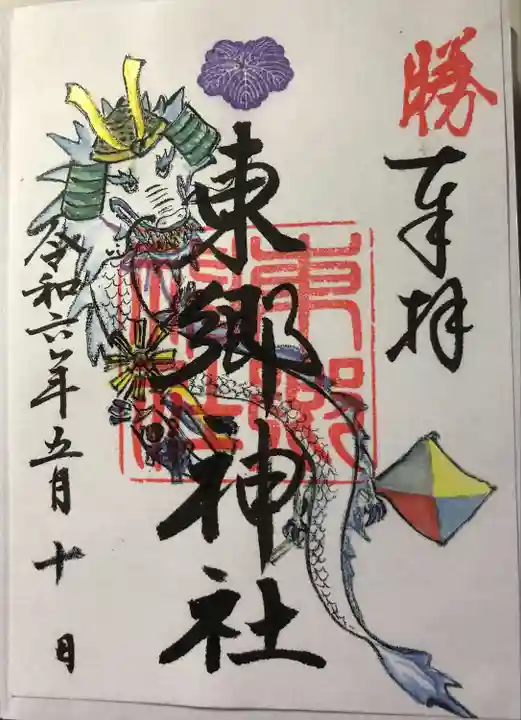 勝
奉拝
東郷神社
東郷神社
令和六年五月十日